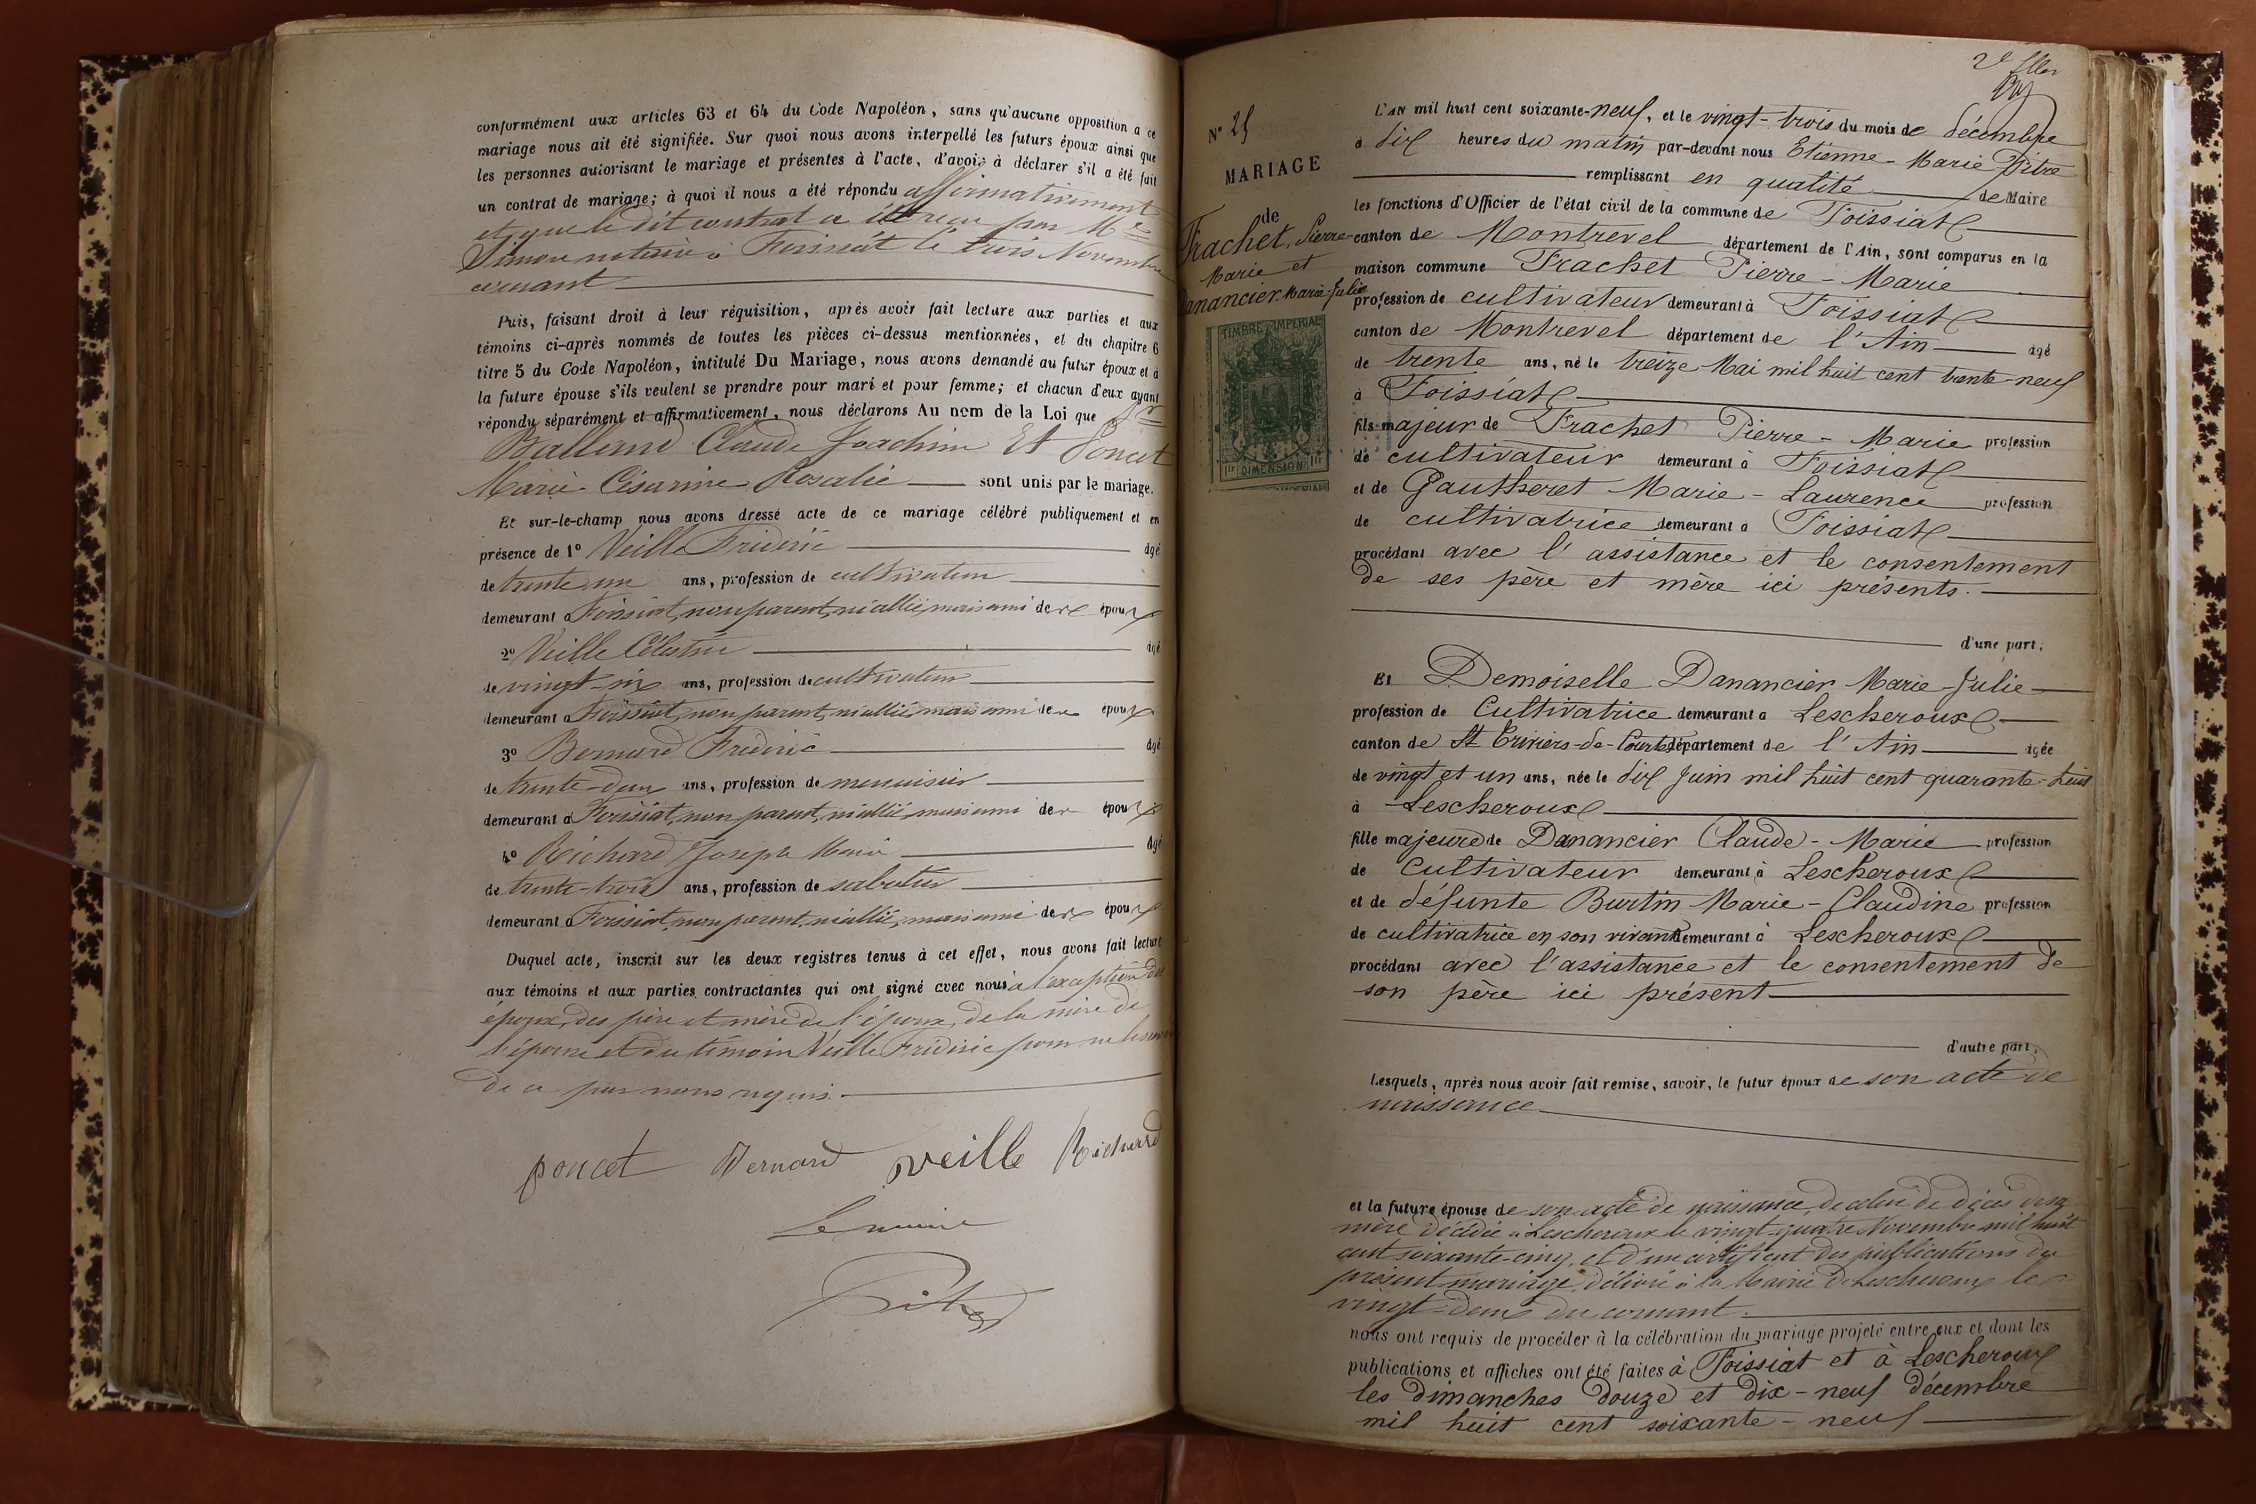 conformément aux articles 63 et 64 du Code Napoléon, sans qu'aucune opposition à ce
mariage nous ait été signifiée. Sur quoi nous avons interpellé les futurs époux ainsi que
les personnes autorisant le mariage et présentes à l'acte, d'avoir à déclarer s'il a été fait
un contrat de mariage; à quoi il nous a été répondu affirmativement
et que le dit contrat a été reçu par Me
Simon notaire à Foissiat le trois Novembre
courant
Puis, faisant droit à leur réquisition, après avoir fait lecture aux parties et aux
témoins ci-après nommés de toutes les pièces ci-dessus mentionnées, et du chapitre 6
titre 5 du Code Napoléon, intitulé Du Mariage, nous avons demandé au futur époux et à
la future épouse s'ils veulent se prendre pour mari et pour femme; et chacun d'eux ayant
répondu séparément et affirmativement, nous déclarons Au nom de la Loi que
Balland Claude Joachim Et Poncet
Marie Césarine Rosalie sont unis par le mariage.
Et sur-le-champ nous avons dressé acte de ce mariage célébré publiquement et en
présence de 1º Veille Frédéric âgé
de trente un ans, profession de cultivateur
demeurant à Foissiat, non parent, ni allié, mais ami des époux
2º Veille Célestin âgé
de vingt-six ans, profession de cultivateur
demeurant à Foissiat, non parent, ni allié, mais ami des époux
3º Bernard Frédéric âgé
de trente-deux ans, profession de menuisier
demeurant à Foissiat, non parent, ni allié, mais ami des époux
4º Richard Joseph Marie âgé
de trente-trois ans, profession de sabotier
demeurant à Foissiat, non parent, ni allié, mais ami des époux
Duquel acte, inscrit sur les deux registres tenus à cet effet, nous avons fait lecture
aux témoins et aux parties contractantes qui ont signé avec nous à l'exception des
époux, des père et mère de l'époux, de la mère de
l'épouse et du témoin Veille Frédéric pour ne le savoir
de ce par nous requis.
poncet Bernard veille Richard
Le maire
Pitre
Nº 25
MARIAGE
de
Frachet, Pierre-
Marie et
Danancier Marie-Julie
TIMBRE IMPERIAL
1fr DIMENSION 1fr
L'AN mil huit cent soixante-neuf, et le vingt-trois du mois de décembre
à dix heures du matin par-devant nous Etienne-Marie Pitre
remplissant en qualité de Maire
les fonctions d'Officier de l'état civil de la commune de Foissiat
canton de Montrevel département de l'Ain, sont comparus en la
maison commune Frachet Pierre-Marie
profession de cultivateur demeurant à Foissiat
canton de Montrevel département de l'Ain âgé
de trente ans, né le treize Mai mil huit cent trente-neuf
à Foissiat
fils majeur de Frachet Pierre-Marie profession
de cultivateur demeurant à Foissiat
et de Gautheret Marie-Laurence profession
de cultivatrice demeurant à Foissiat
procédant avec l'assistance et le consentement
de ses père et mère ici présents.
d'une part;
Et Demoiselle Danancier Marie-Julie
profession de Cultivatrice demeurant à Lescheroux
canton de St Triviers-de-Courtes département de l'Ain âgée
de vingt et un ans, née le dix Juin mil huit cent quarante-huit
à Lescheroux
fille majeure de Danancier Claude-Marie profession
de Cultivateur demeurant à Lescheroux
et de défunte Burtin Marie-Claudine profession
de cultivatrice en son vivant demeurant à Lescheroux
procédant avec l'assistance et le consentement de
son père ici présent
d'autre part,
Lesquels, après nous avoir fait remise, savoir, le futur époux de son acte de
naissance
et la future épouse de son acte de naissance, de celui de décès de sa
mère décédée à Lescheroux le vingt-quatre Novembre mil huit
cent soixante-cinq, et d'un certificat des publications du
présent mariage, délivré à la Mairie de Lescheroux le
vingt-deux du courant.
nous ont requis de procéder à la célébration du mariage projeté entre eux et dont les
publications et affiches ont été faites à Foissiat et à Lescheroux
les dimanches douze et dix-neuf décembre
mil huit cent soixante-neuf